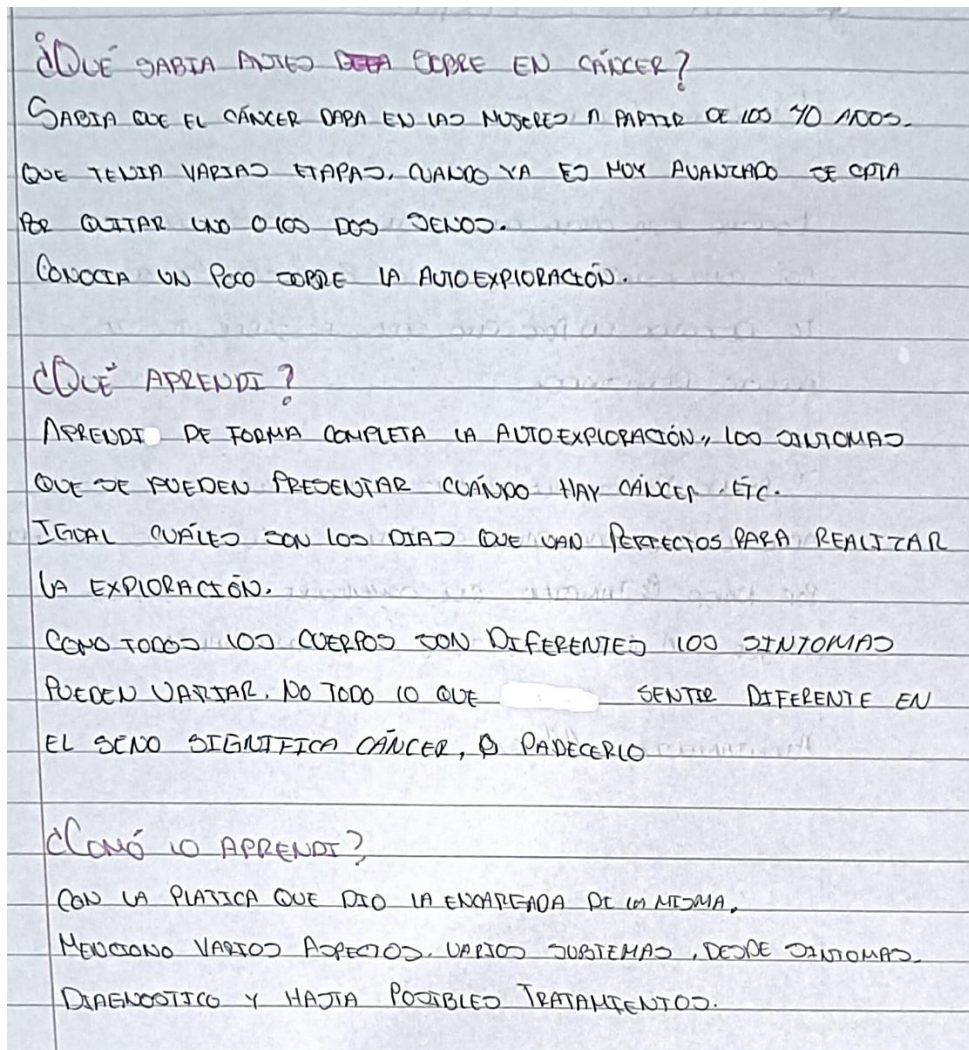 ¿QUÉ SABIA ANTES SOBRE EN CÁNCER?
SABIA QUE EL CÁNCER DABA EN LAS MUJERES A PARTIR DE LOS 40 AÑOS.
QUE TENIA VARIAS ETAPAS, CUANDO YA ES MUY AVANZADO SE OPTA
POR QUITAR UNO O LOS DOS SENOS.
CONOCIA UN POCO SOBRE LA AUTOEXPLORACIÓN.
¿QUÉ APRENDI?
APRENDI DE FORMA COMPLETA LA AUTOEXPLORACIÓN, LOS SINTOMAS
QUE SE PUEDEN PRESENTAR CUÁNDO HAY CÁNCER ETC.
IGUAL CUÁLES SON LOS DIAS QUE VAN PERFECTOS PARA REALIZAR
LA EXPLORACIÓN.
COMO TODOS LOS CUERPOS SON DIFERENTES LOS SINTOMAS
PUEDEN VARIAR. NO TODO LO QUE SENTIR DIFERENTE EN
EL SENO SIGNIFICA CÁNCER, O PADECERLO
¿COMÓ LO APRENDI?
CON LA PLATICA QUE DIO LA ENCARGADA DE LA MISMA.
MENCIONO VARIOS ASPECTOS. VARIOS SUBTEMAS, DESDE SINTOMAS.
DIAGNOSTICO Y HASTA POSIBLES TRATAMIENTOS.